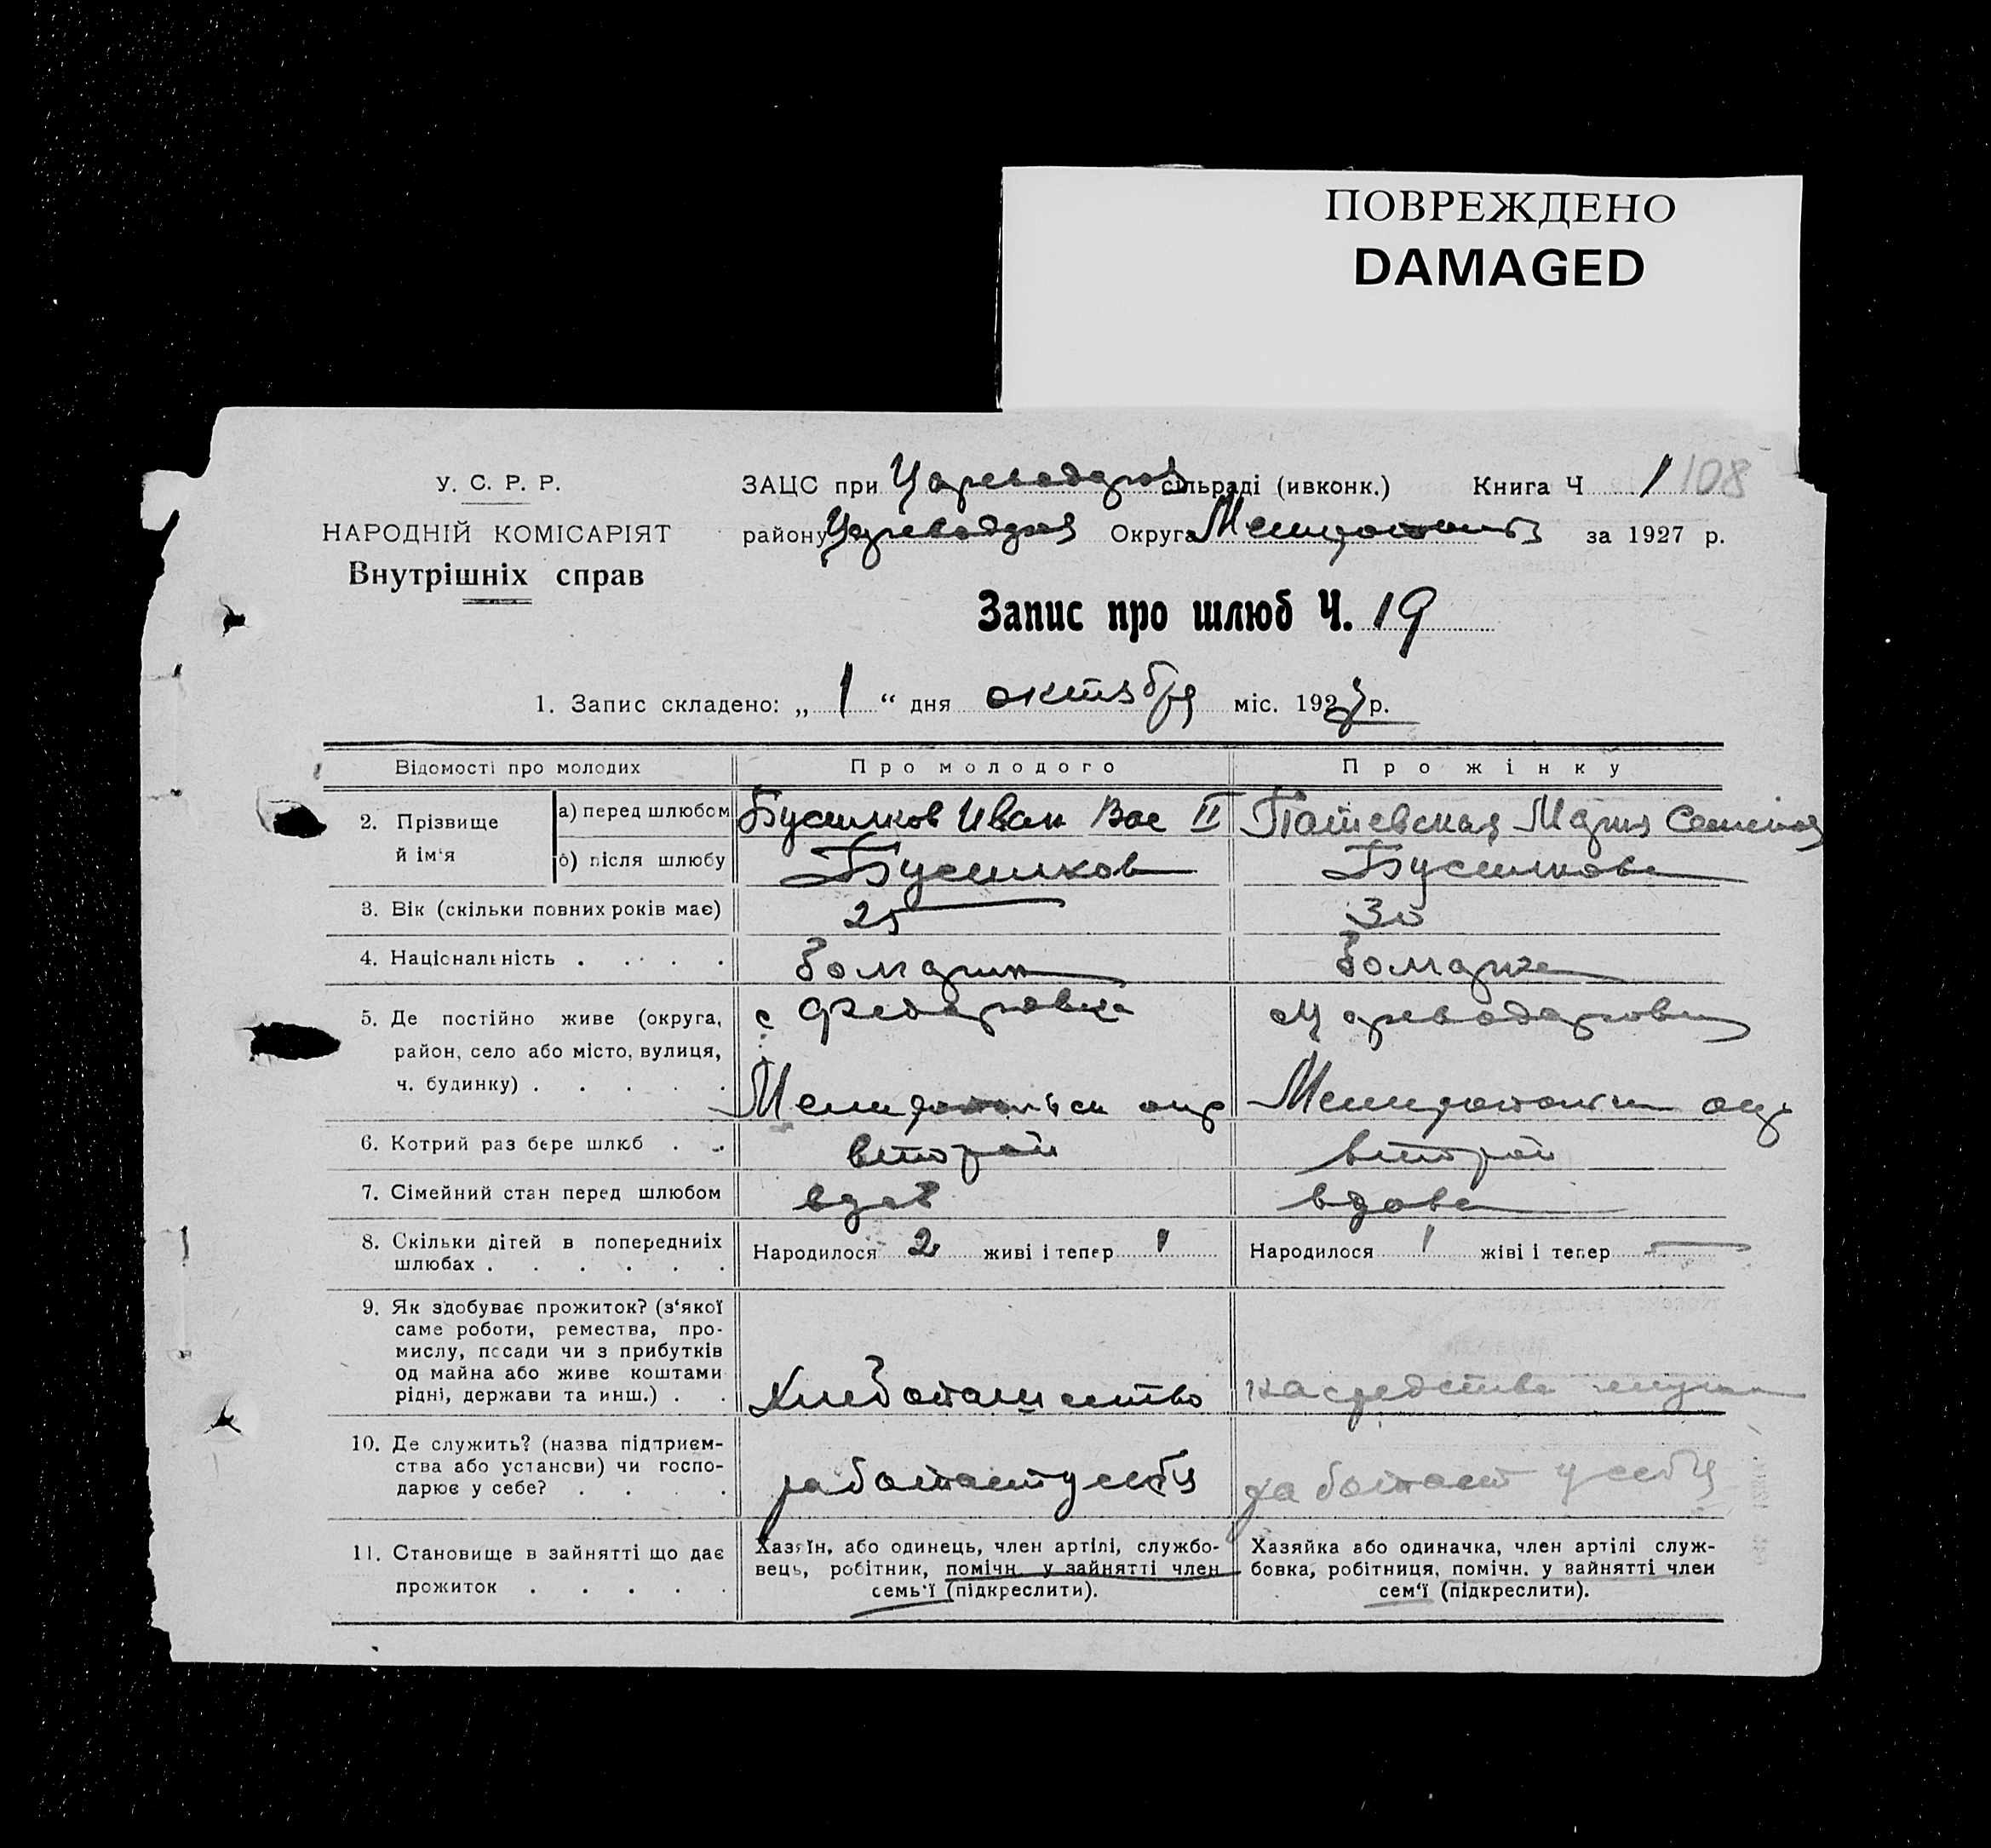 ПОВРЕЖДЕНО
DAMAGED
У. С. Р. Р.
НАРОДНІЙ КОМІСАРІЯТ
Внутрішніх справ
ЗАЦС при Цареводаров сільраді (ивконк.) Книга Ч 1 108
району Цареводаров Округа Мелитопольс за 1927 р.
Запис про шлюб Ч. 19
1. Запис складено: „ 1 “ дня октября міс. 1927 р.
Відомості про молодих Про молодого Про жінку
2. Прізвище й ім‘я
а) перед шлюбом Бусилков Иван Вас II Мария
б) після шлюбу Бусилков Бусилкова
3. Вік (скільки повних років має) 25 30
4. Національність . . . . . болгарин болгарка
5. Де постійно живе (округа, с Федоровка
район, село або місто, вулиця,
ч. будинку) . . . . . Мелитопольск окр Мелитопольск окр
6. Котрий раз бере шлюб . . второй второй
7. Сімейний стан перед шлюбом вдов вдова
8. Скільки дітей в попередниіх Народилося 2 живі і тепер 1 Народилося 1 жіві і тепер —
шлюбах . . . . . .
9. Як здобуває прожиток? (з‘якої
саме роботи, ремества, про-
мислу, посади чи з прибутків
од майна або живе коштами
рідні, держави та инш.) . . Хлебопашество на средства мужа
10. Де служить? (назва підприєм-
ства або установи) чи госпо-
дарює у себе? . . . . работает у себя работает у себя
11. Становище в зайнятті що дає
прожиток . . . . .
Хазяїн, або одинець, член артілі, службо-
вець, робітник, помічн. у зайнятті член
семь‘ї (підкреслити).
Хазяйка або одиначка, член артілі служ-
бовка, робітниця, помічн. у зайнятті член
сем‘ї (підкреслити).